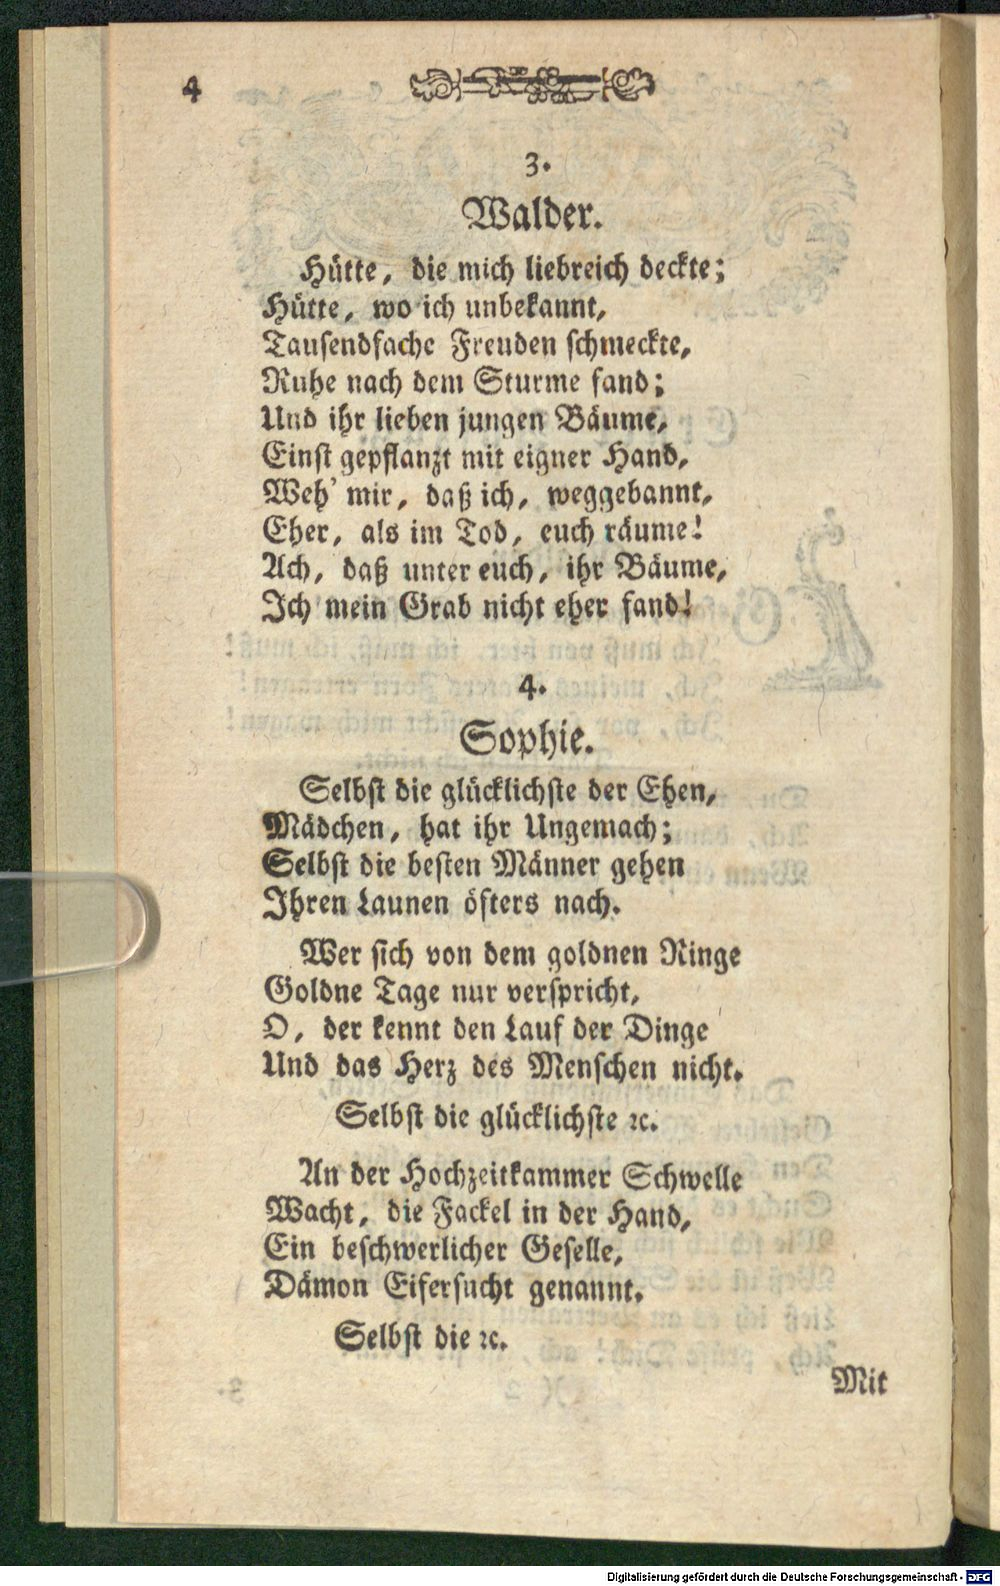 4
3.
Walder.
Hütte, die mich liebreich deckte;
Hütte, wo ich unbekannt,
Tausendfache Freuden schmeckte,
Ruhe nach dem Sturme fand;
Und ihr lieben jungen Bäume,
Einst gepflanzt mit eigner Hand,
Weh' mir, daß ich, weggebannt,
Eher, als im Tod, euch räume!
Ach, daß unter euch, ihr Bäume,
Ich mein Grab nicht eher fand!
4.
Sophie.
Selbst die glücklichste der Ehen,
Mädchen, hat ihr Ungemach;
Selbst die besten Männer gehen
Ihren Launen öfters nach.
Wer sich von dem goldnen Ringe
Goldne Tage nur verspricht,
O, der kennt den Lauf der Dinge
Und das Herz des Menschen nicht.
Selbst die glücklichste ꝛc.
An der Hochzeitkammer Schwelle
Wacht, die Fackel in der Hand,
Ein beschwerlicher Geselle,
Dämon Eifersucht genannt.
Selbst die ꝛc.
Mit
Digitalisierung gefördert durch die Deutsche Forschungsgemeinschaft - DFG